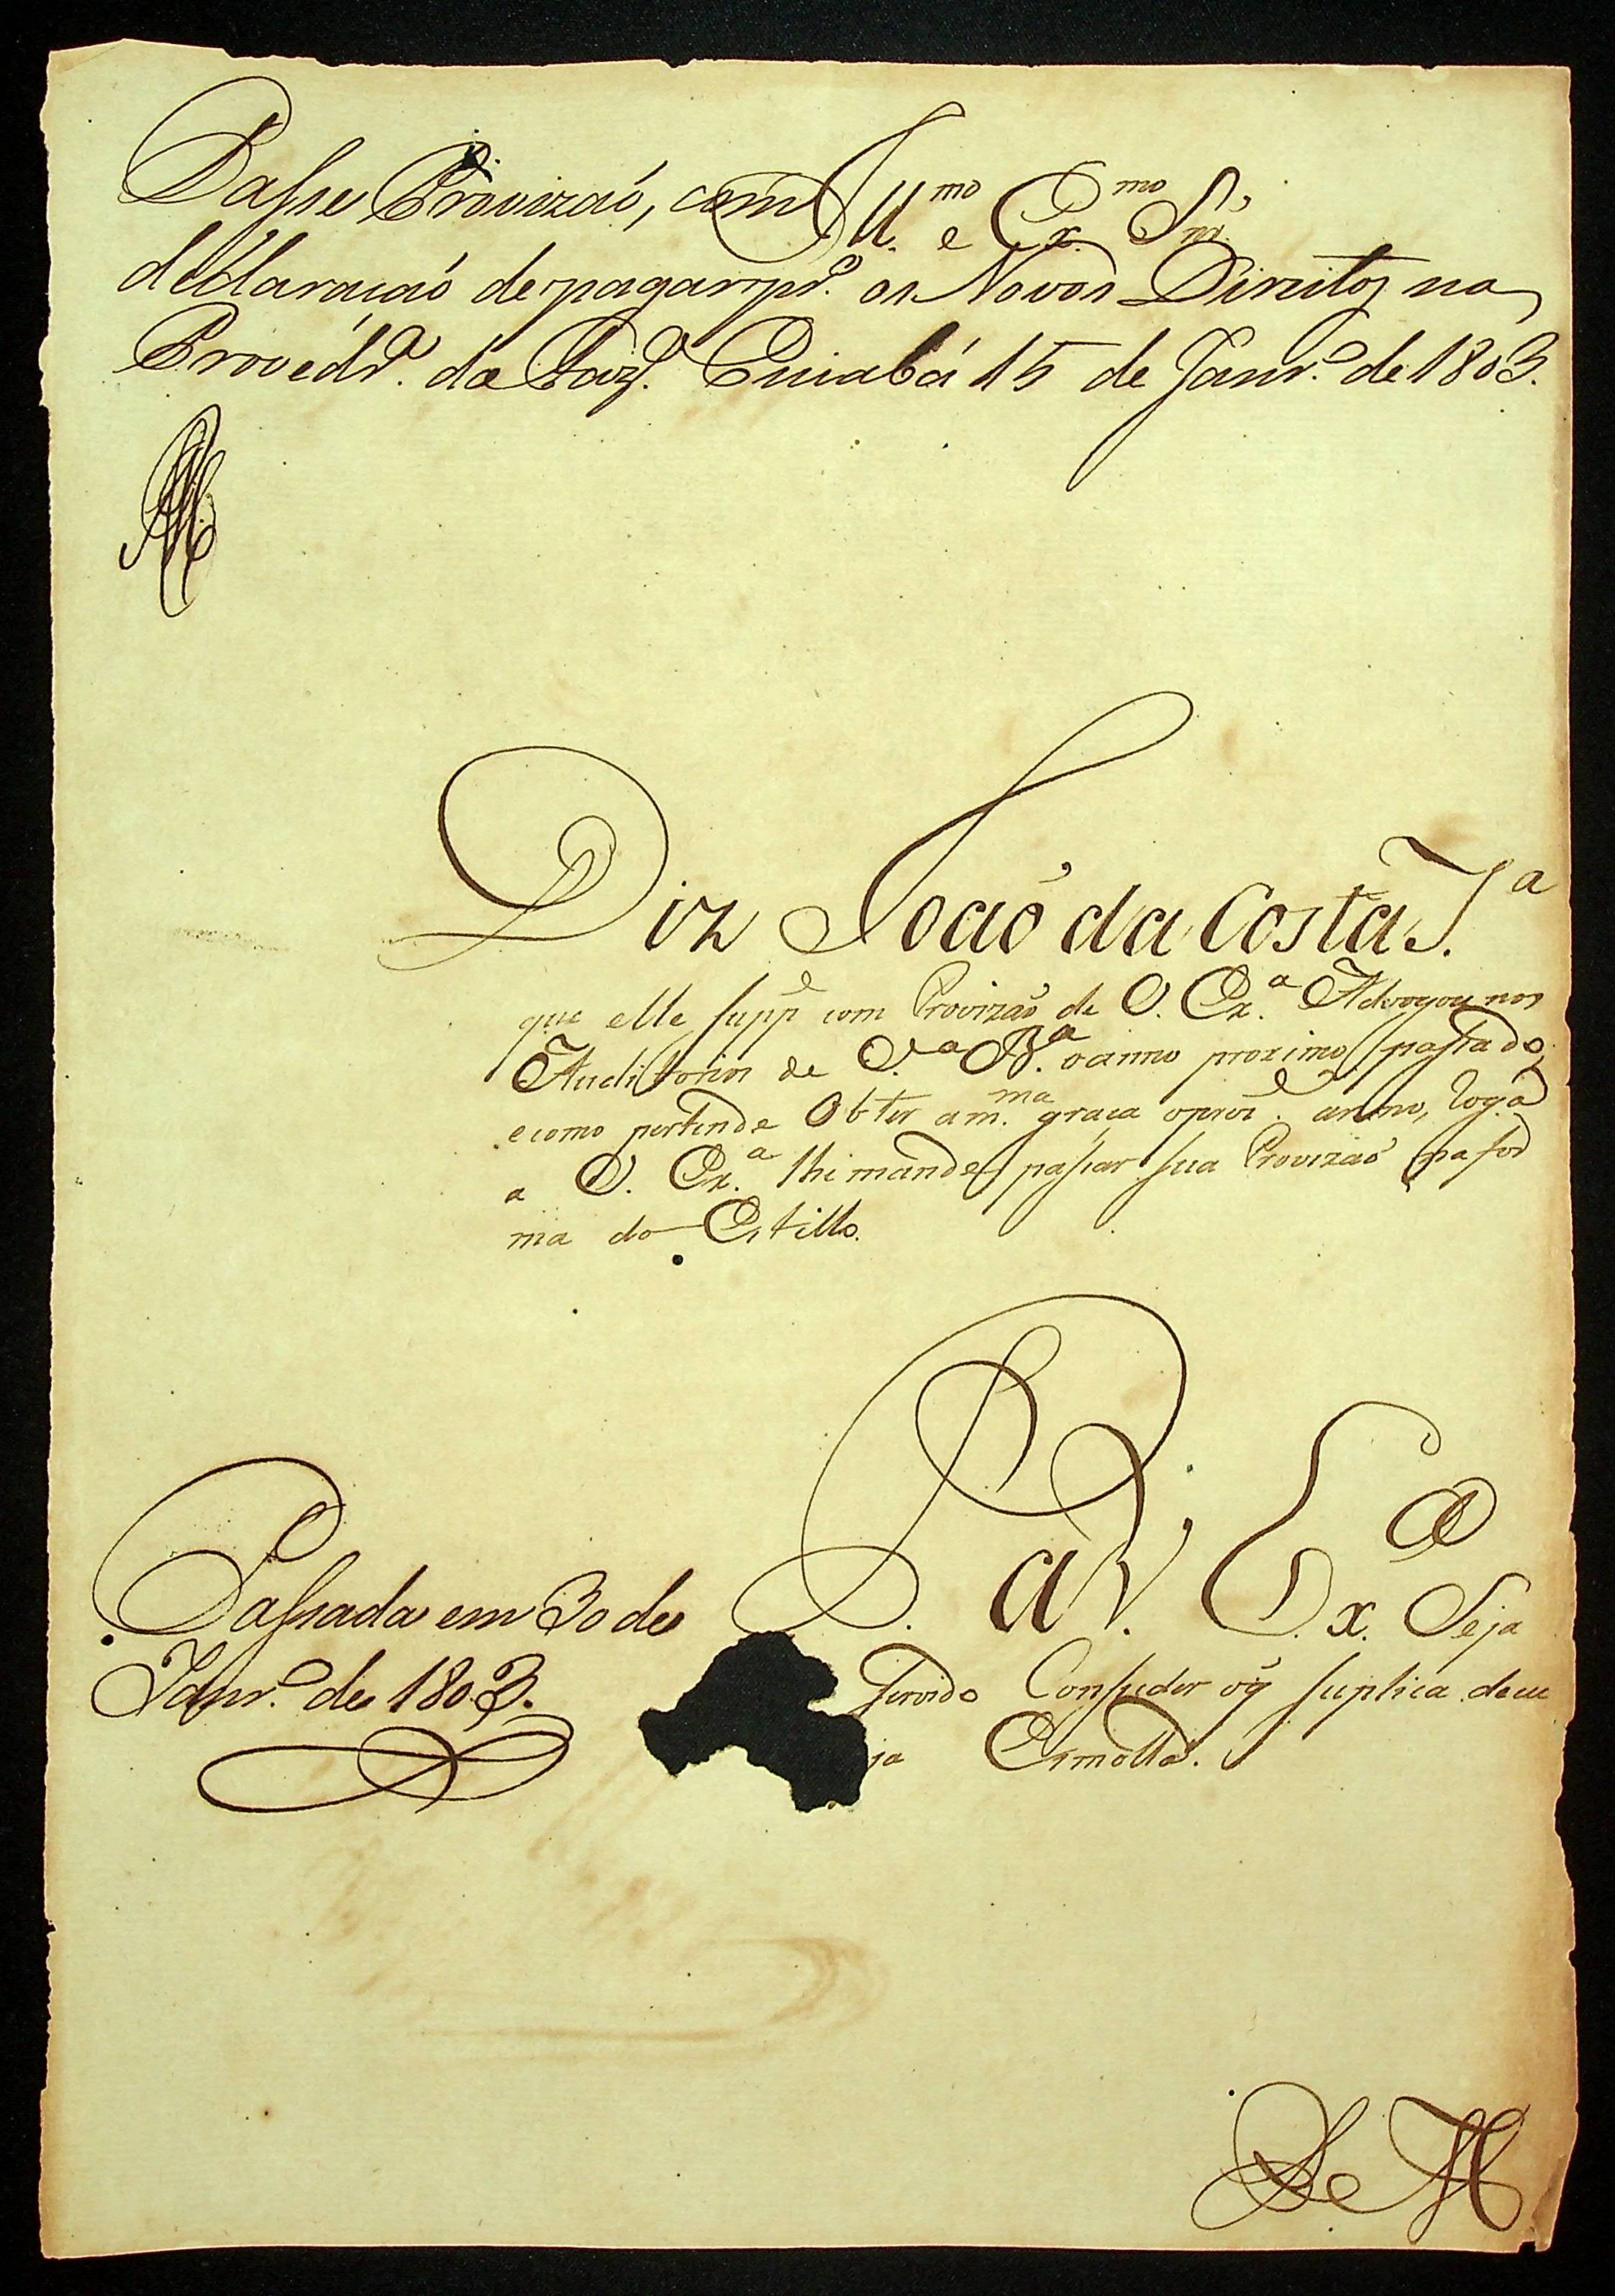 Passe Provizaó, com Ill.mo e Ex.mo Snr.
declaraçaó de pagar pr.o os Novos Direitos na
Provedr.a da Faz.a Cuiabá 15 de Janr.o de 1803.
Diz Joaõ da Costa S.a
que elle supp.e com Provizaõ de V. Ex.a Advogou nos
Auditorios de V.a B.a o anno proximo passado,
e como pertende Obter a m.ma graça o prez.e anno, roga
a V. Ex.a lhi mande passar sua Provizaó na for
ma do Estillo.
P. a V. Ex.a Seja
servido Conseder o q̃ suplica de cu
ja Esmolla.
Passada em 30 de
Janr.o de 1803.
E R M